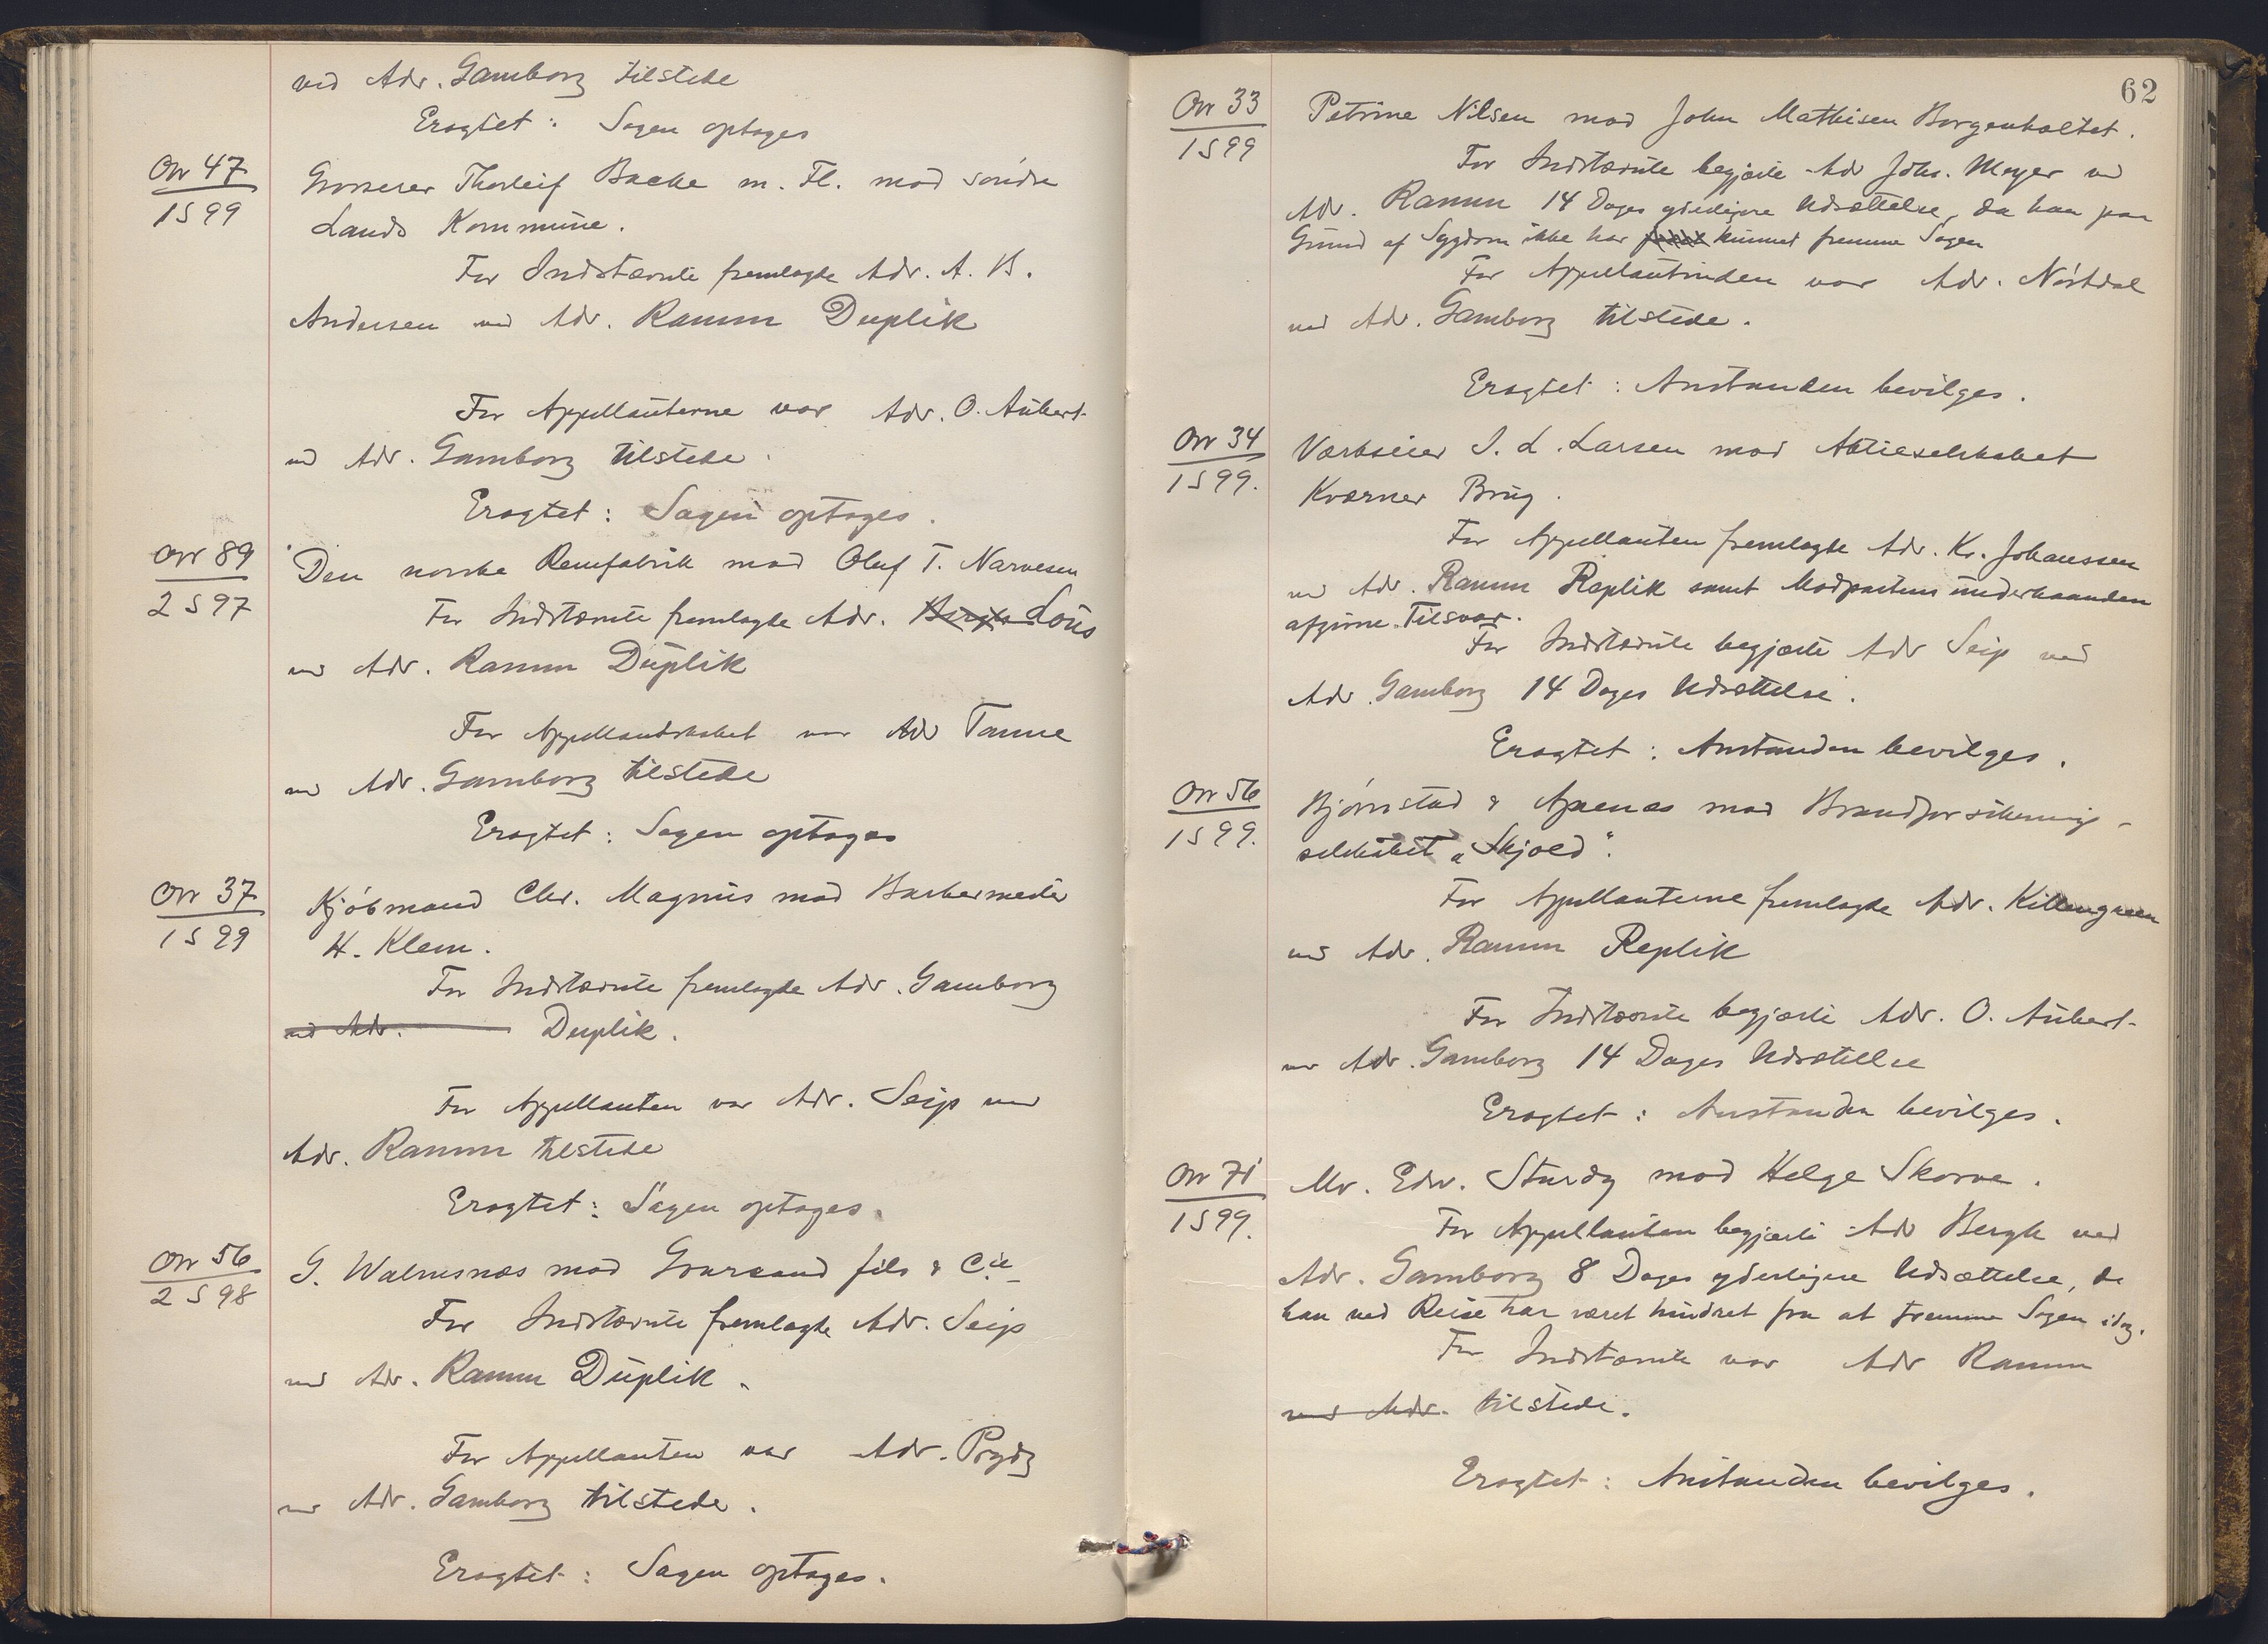 ved Adv. Gamborg tilstede
Eragtet: Sagen optages
Ov 47
1 S 99
Grosserer Thorleif Bache m. Fl. mod Søndre
Lands Kommune.
For Indstævnte fremlagde Adv. A. B.
Andersen ved Adv. Ramm Duplik
For Appellanterne var Adv. O. Aubert
ved Adv. Gamborg tilstede.
Eragtet: Sagen optages.
Ov 89
2 S 97
Den norske Remfabrik mod Oluf T. Narvesen
For Indstævnte fremlagde Adv. Lous
ved Adv. Ramm Duplik
For Appellantskabet var Adv Tanne
ved Adv. Gamborg tilstede
Eragtet: Sagen optages
Ov 37
1 S 99
Kjöbmand Chr. Magnus mod Barbermester
H. Klem.
For Indstævnte fremlagde Adv. Gamborg
ved Adv. Duplik.
For Appellanten var Adv. Seip ved
Adv. Ramm tilstede
Eragtet: Sagen optages.
Ov 56
2 S 98
G. Walnusnæs mod fils & Cie
For Indstævnte fremlagde Adv. Seip
ved Adv. Ramm Duplik.
For Appellanten var Adv. Prydz
ved Adv. Gamborg tilstede.
Eragtet: Sagen optages.
62
Ov 33
1 S 99
Petrine Nilsen mod John Mathisen Borgenholtet.
For Indstævnte begjærte Adv Johs. Meyer ved
Adv. Ramm 14 Dages yderligere Udsættelse, da han paa
Grund af Sygdom ikke har kunnet fremme Sagen
For Appellantinden var Adv. Nørdal
ved Adv. Gamborg tilstede.
Eragtet: Anstanden bevilges.
Ov 34
1 S 99.
Værkseier I. L. Larsen mod Aktieselskabet
Kværner Brug.
For Appellanten fremlagde Adv. Kr. Johanssen
ved Adv. Ramm Replik samt Modpartens underhaanden
afgivne Tilsvar.
For Indstævnte begjærte Adv Seip ved
Adv. Gamborg 14 Dages Udsættelse.
Eragtet: Anstanden bevilges.
Ov 56
1 S 99.
Bjørnstad & Apenæs mod Brandforsikrings-
selskabet „Skjold".
For Appellanterne fremlagde Adv. Killengreen
ved Adv. Ramm Replik
For Indstævnte begjærte Adv. O. Aubert
ved Adv. Gamborg 14 Dages Udsættelse
Eragtet: Anstanden bevilges.
Ov 71
1 S 99.
Mr. Edw. Sturdy mod Helge Skorve.
For Appellanten begjærte Adv Bergh ved
Adv. Gamborg 8 Dages yderligere Udsættelse, da
han ved Reise har været hindret fra at fremme Sagen idag.
For Indstævnte var Adv Ramm
ved Adv. tilstede.
Eragtet: Anstanden bevilges.